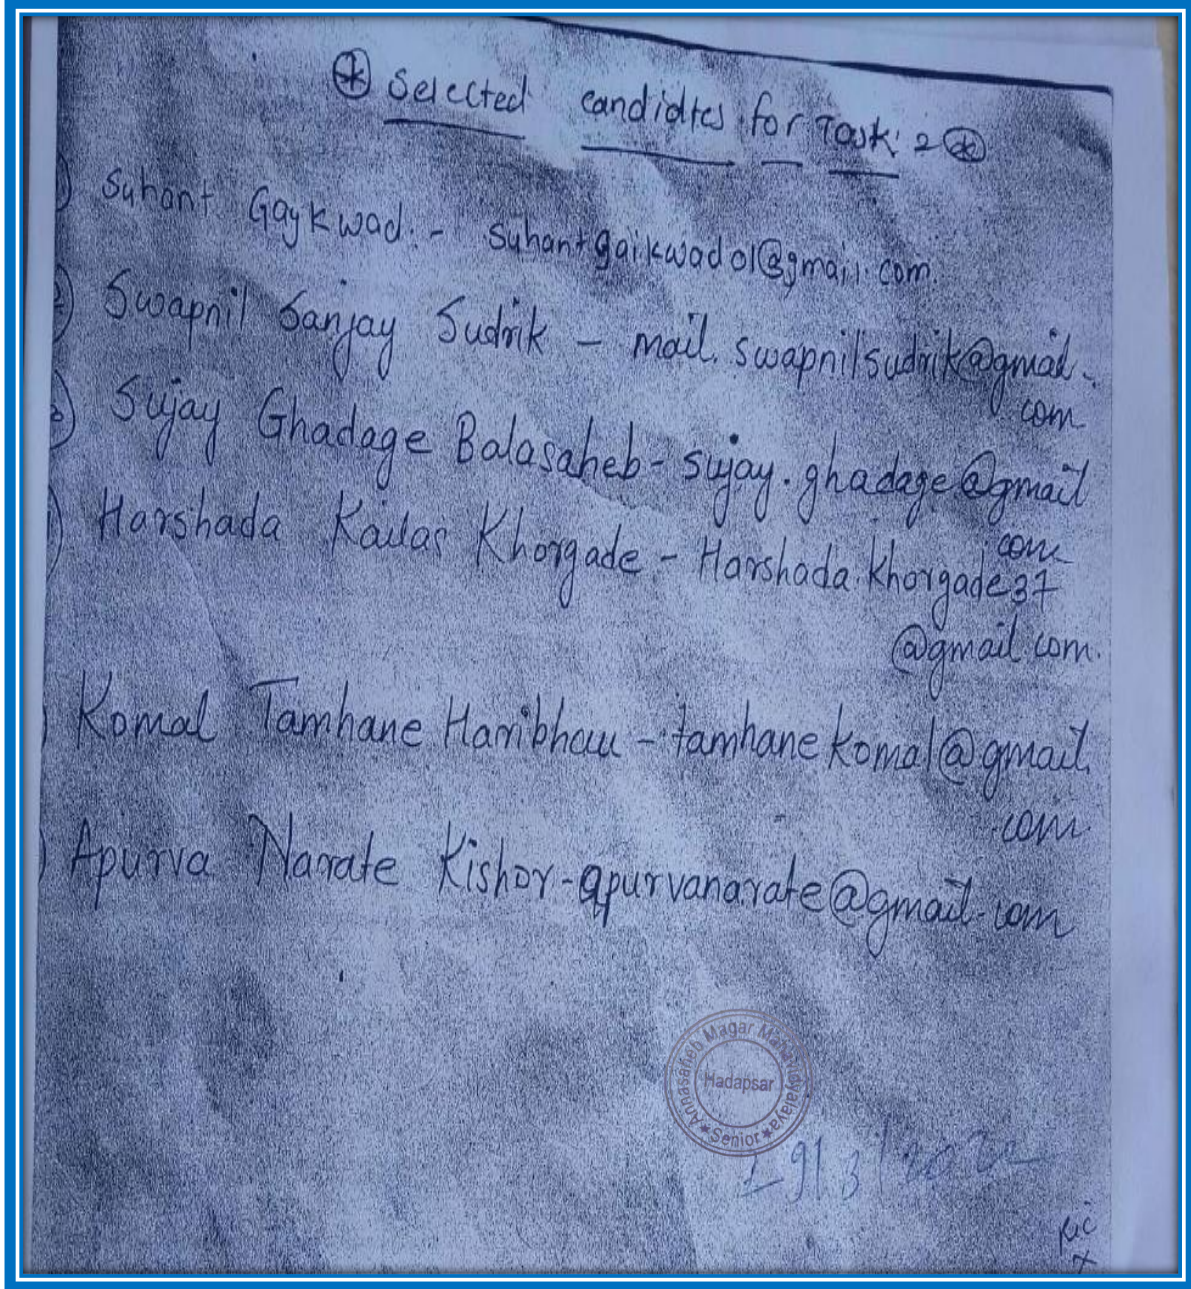 * Selected candidtes for Task: 2 *
Suhant Gaykwad. - suhantgaikwad01@gmail.com.
2) Swapnil Sanjay Sudrik - mail.swapnilsudrik@gmail.
com
3) Sujay Ghadage Balasaheb - sujay.ghadage@gmail
.com
Harshada Kailas Khorgade - Harshada.khorgade37
@gmail.com.
Komal Tamhane Haribhau - tamhanekomal@gmail
.com.
Apurva Narate Kishor - apurvanarate@gmail.com
Annasaheb Magar Mahavidyalaya
Hadapsar
★ Senior ★
/3/2022